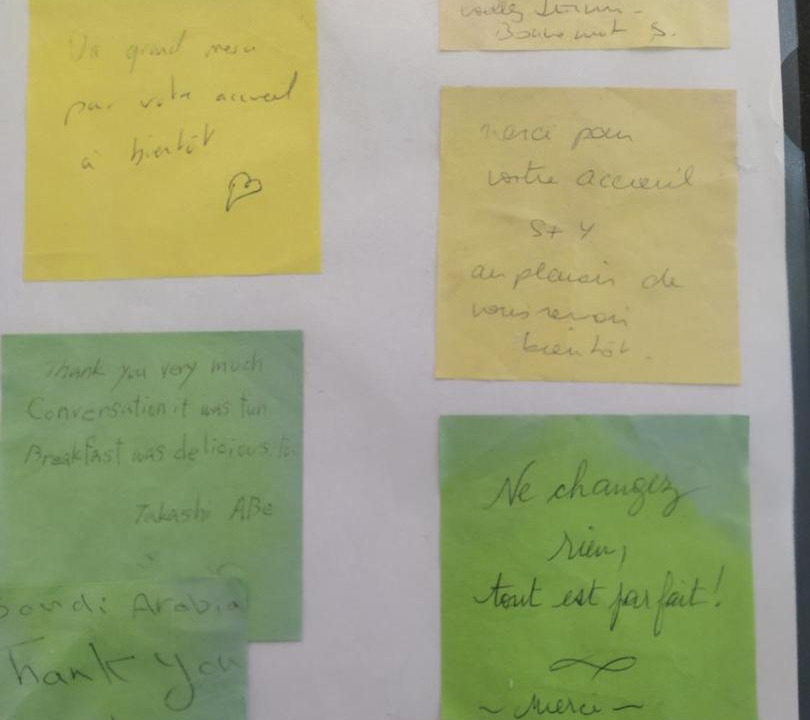 Un grand merci
pour votre accueil
à bientôt
Bonne nuit S.
merci pour
votre accueil
S + Y
au plaisir de
vous revoir
bientôt.
Thank you very much
Conversation it was fun
Breakfast was delicious
Takashi ABe
Saoudi Arabia
Thank you
Ne changez
rien,
tout est parfait!
~ Merci ~